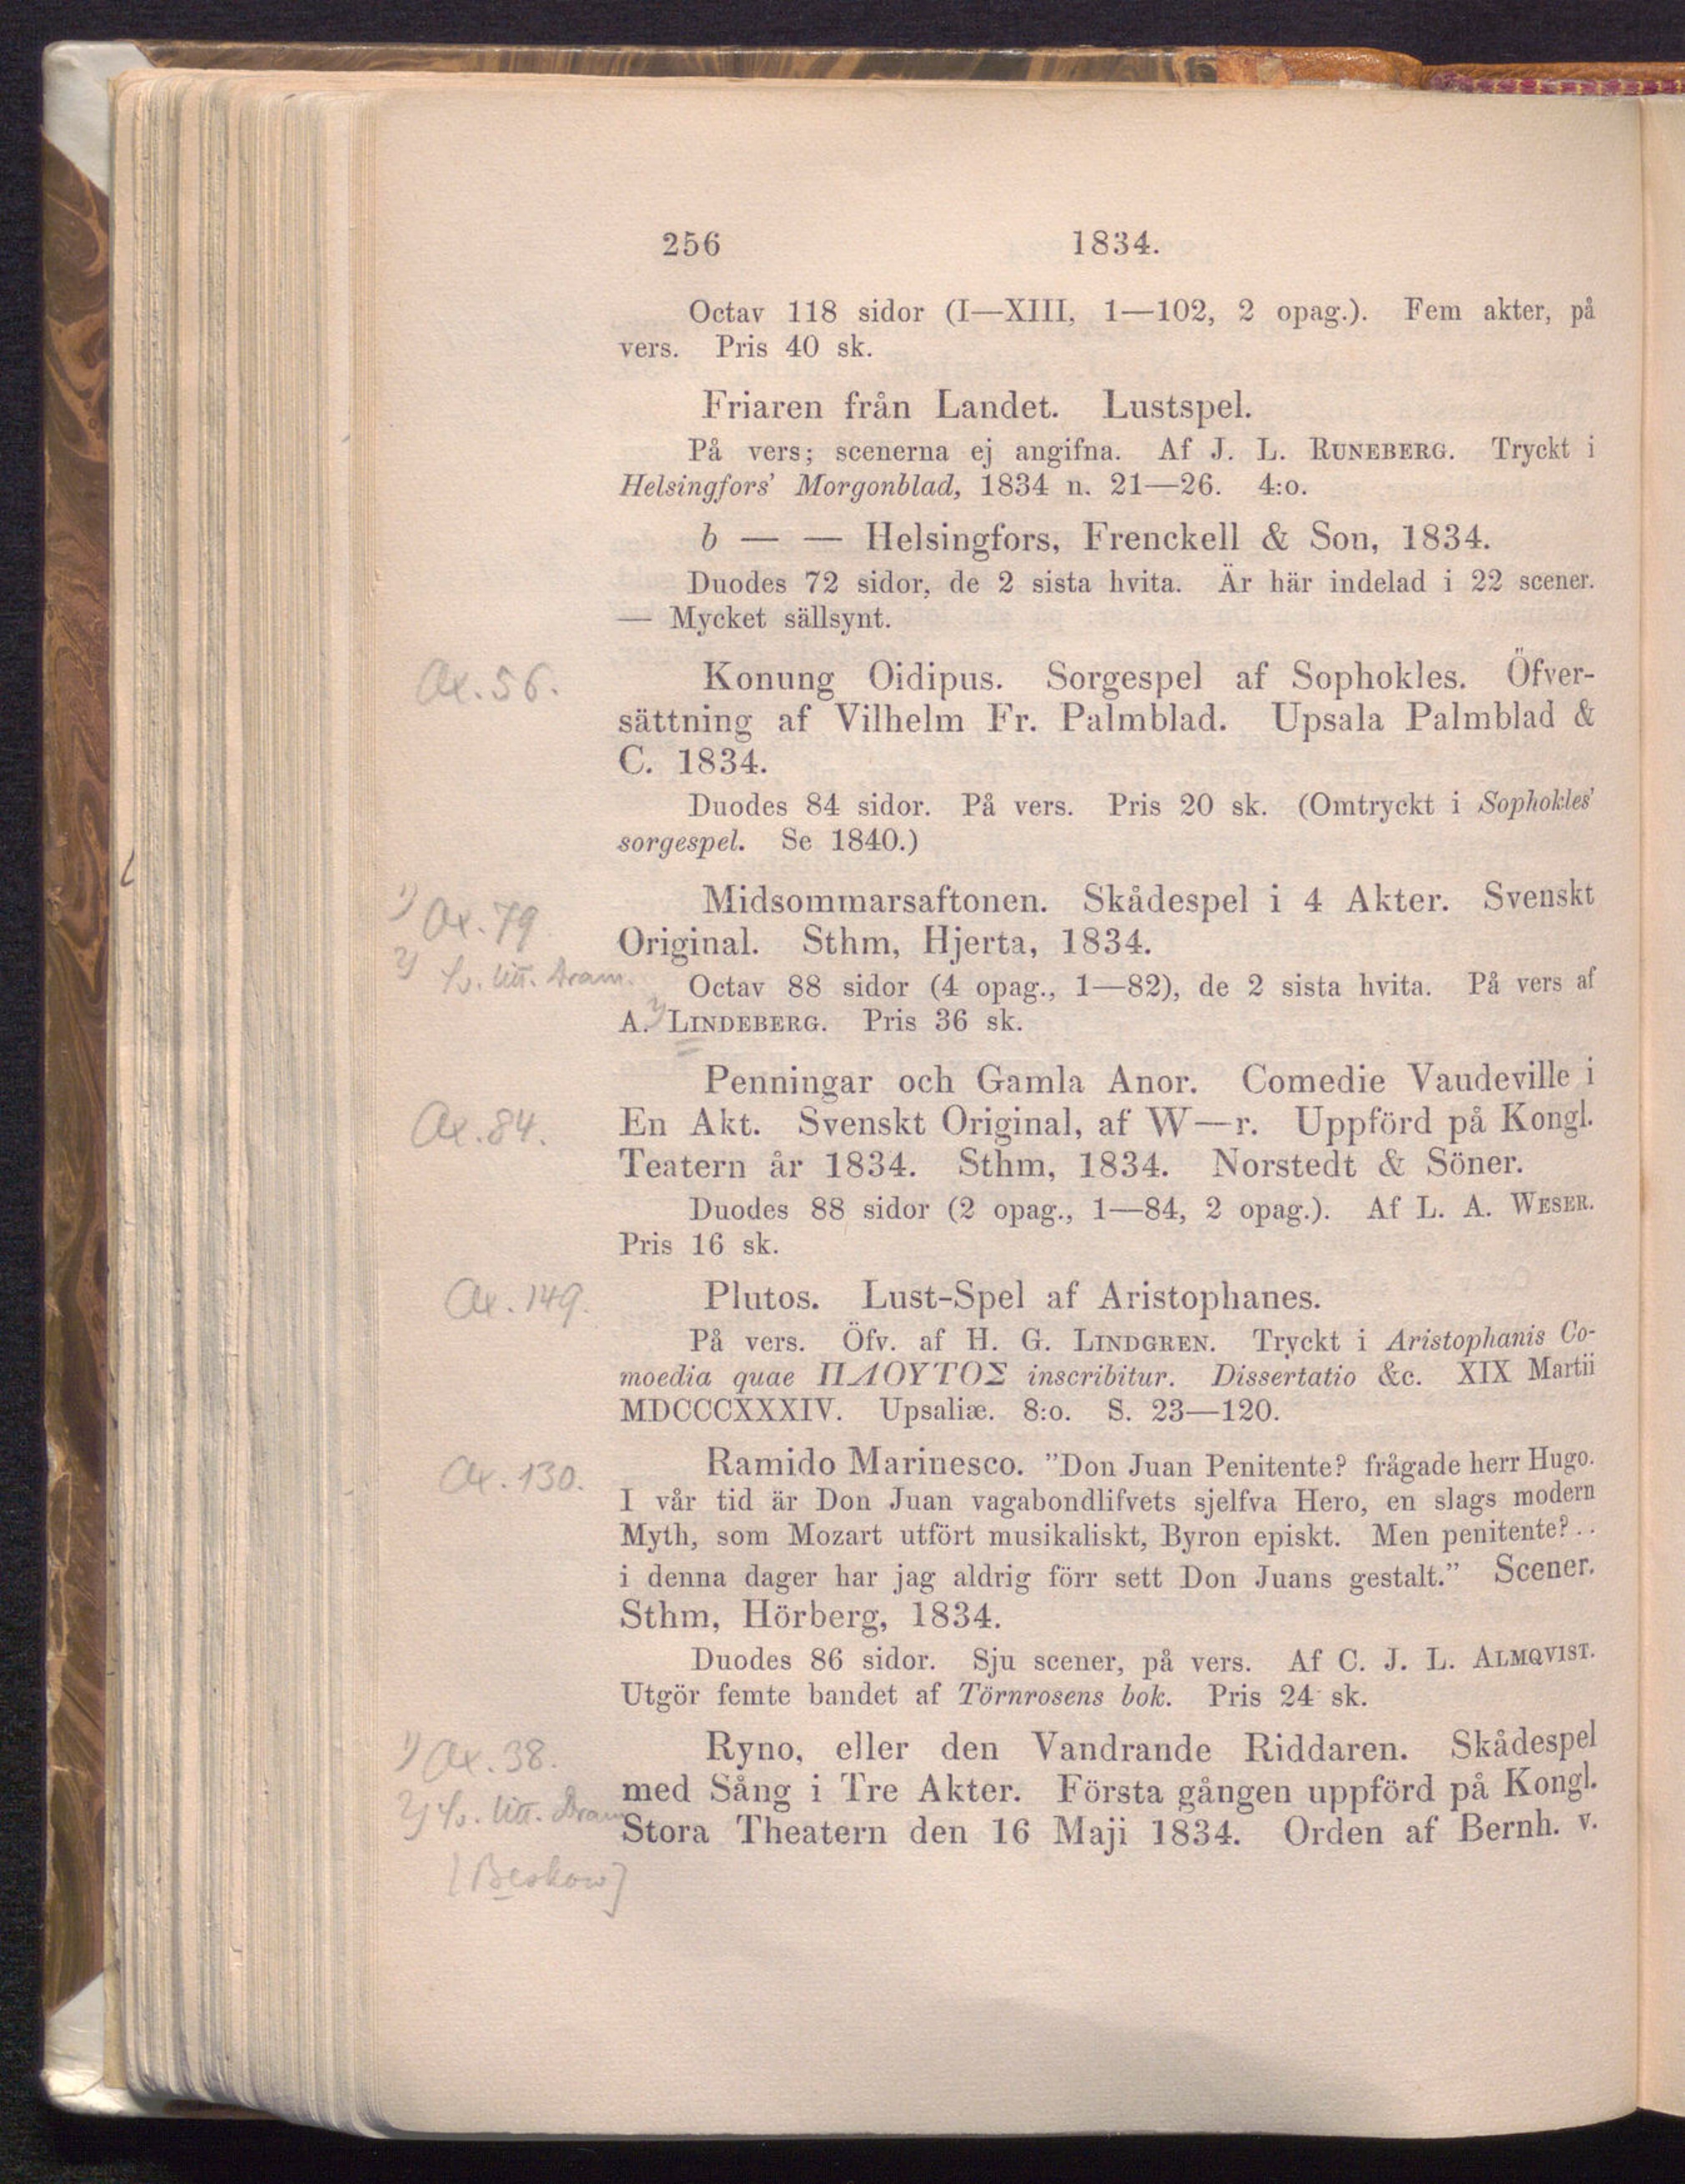 256 1834.
Octav 118 sidor (I—XIII, 1—102, 2 opag.). Fem akter, på
vers. Pris 40 sk.
Friaren från Landet. Lustspel.
På vers; scenerna ej angifna. Af J. L. RUNEBERG. Tryckt i
Helsingfors' Morgonblad, 1834 n. 21—26. 4:o.
b — — Helsingfors, Frenckell & Son, 1834.
Duodes 72 sidor, de 2 sista hvita. Är här indelad i 22 scener.
— Mycket sällsynt.
Ax. 56.
Konung Oidipus. Sorgespel af Sophokles. Öfver-
sättning af Vilhelm Fr. Palmblad. Upsala Palmblad &
C. 1834.
Duodes 84 sidor. På vers. Pris 20 sk. (Omtryckt i Sophokles'
sorgespel. Se 1840.)
1) Ax. 79
2) Sv. litt. Dram.
Midsommarsaftonen. Skådespel i 4 Akter. Svenskt
Original. Sthm, Hjerta, 1834.
Octav 88 sidor (4 opag., 1—82), de 2 sista hvita. På vers af
A. LINDEBERG. Pris 36 sk.
Ax. 84.
Penningar och Gamla Anor. Comedie Vaudeville i
En Akt. Svenskt Original, af W—r. Uppförd på Kongl.
Teatern år 1834. Sthm, 1834. Norstedt & Söner.
Duodes 88 sidor (2 opag., 1—84, 2 opag.). Af L. A. WESER.
Pris 16 sk.
Ax. 149.
Plutos. Lust-Spel af Aristophanes.
På vers. Öfv. af H. G. LINDGREN. Tryckt i Aristophanis Co-
moedia quae ΠΛΟΥΤΟΣ inscribitur. Dissertatio &c. XIX Martii
MDCCCXXXIV. Upsaliæ. 8:o. S. 23—120.
Ax. 130.
Ramido Marinesco. ”Don Juan Penitente? frågade herr Hugo.
I vår tid är Don Juan vagabondlifvets sjelfva Hero, en slags modern
Myth, som Mozart utfört musikaliskt, Byron episkt. Men penitente?..
i denna dager har jag aldrig förr sett Don Juans gestalt.” Scener.
Sthm, Hörberg, 1834.
Duodes 86 sidor. Sju scener, på vers. Af C. J. L. ALMQVIST.
Utgör femte bandet af Törnrosens bok. Pris 24 sk.
1) Ax. 38.
2) Sv. litt. Dram
[Beskow]
Ryno, eller den Vandrande Riddaren. Skådespel
med Sång i Tre Akter. Första gången uppförd på Kongl.
Stora Theatern den 16 Maji 1834. Orden af Bernh. v.